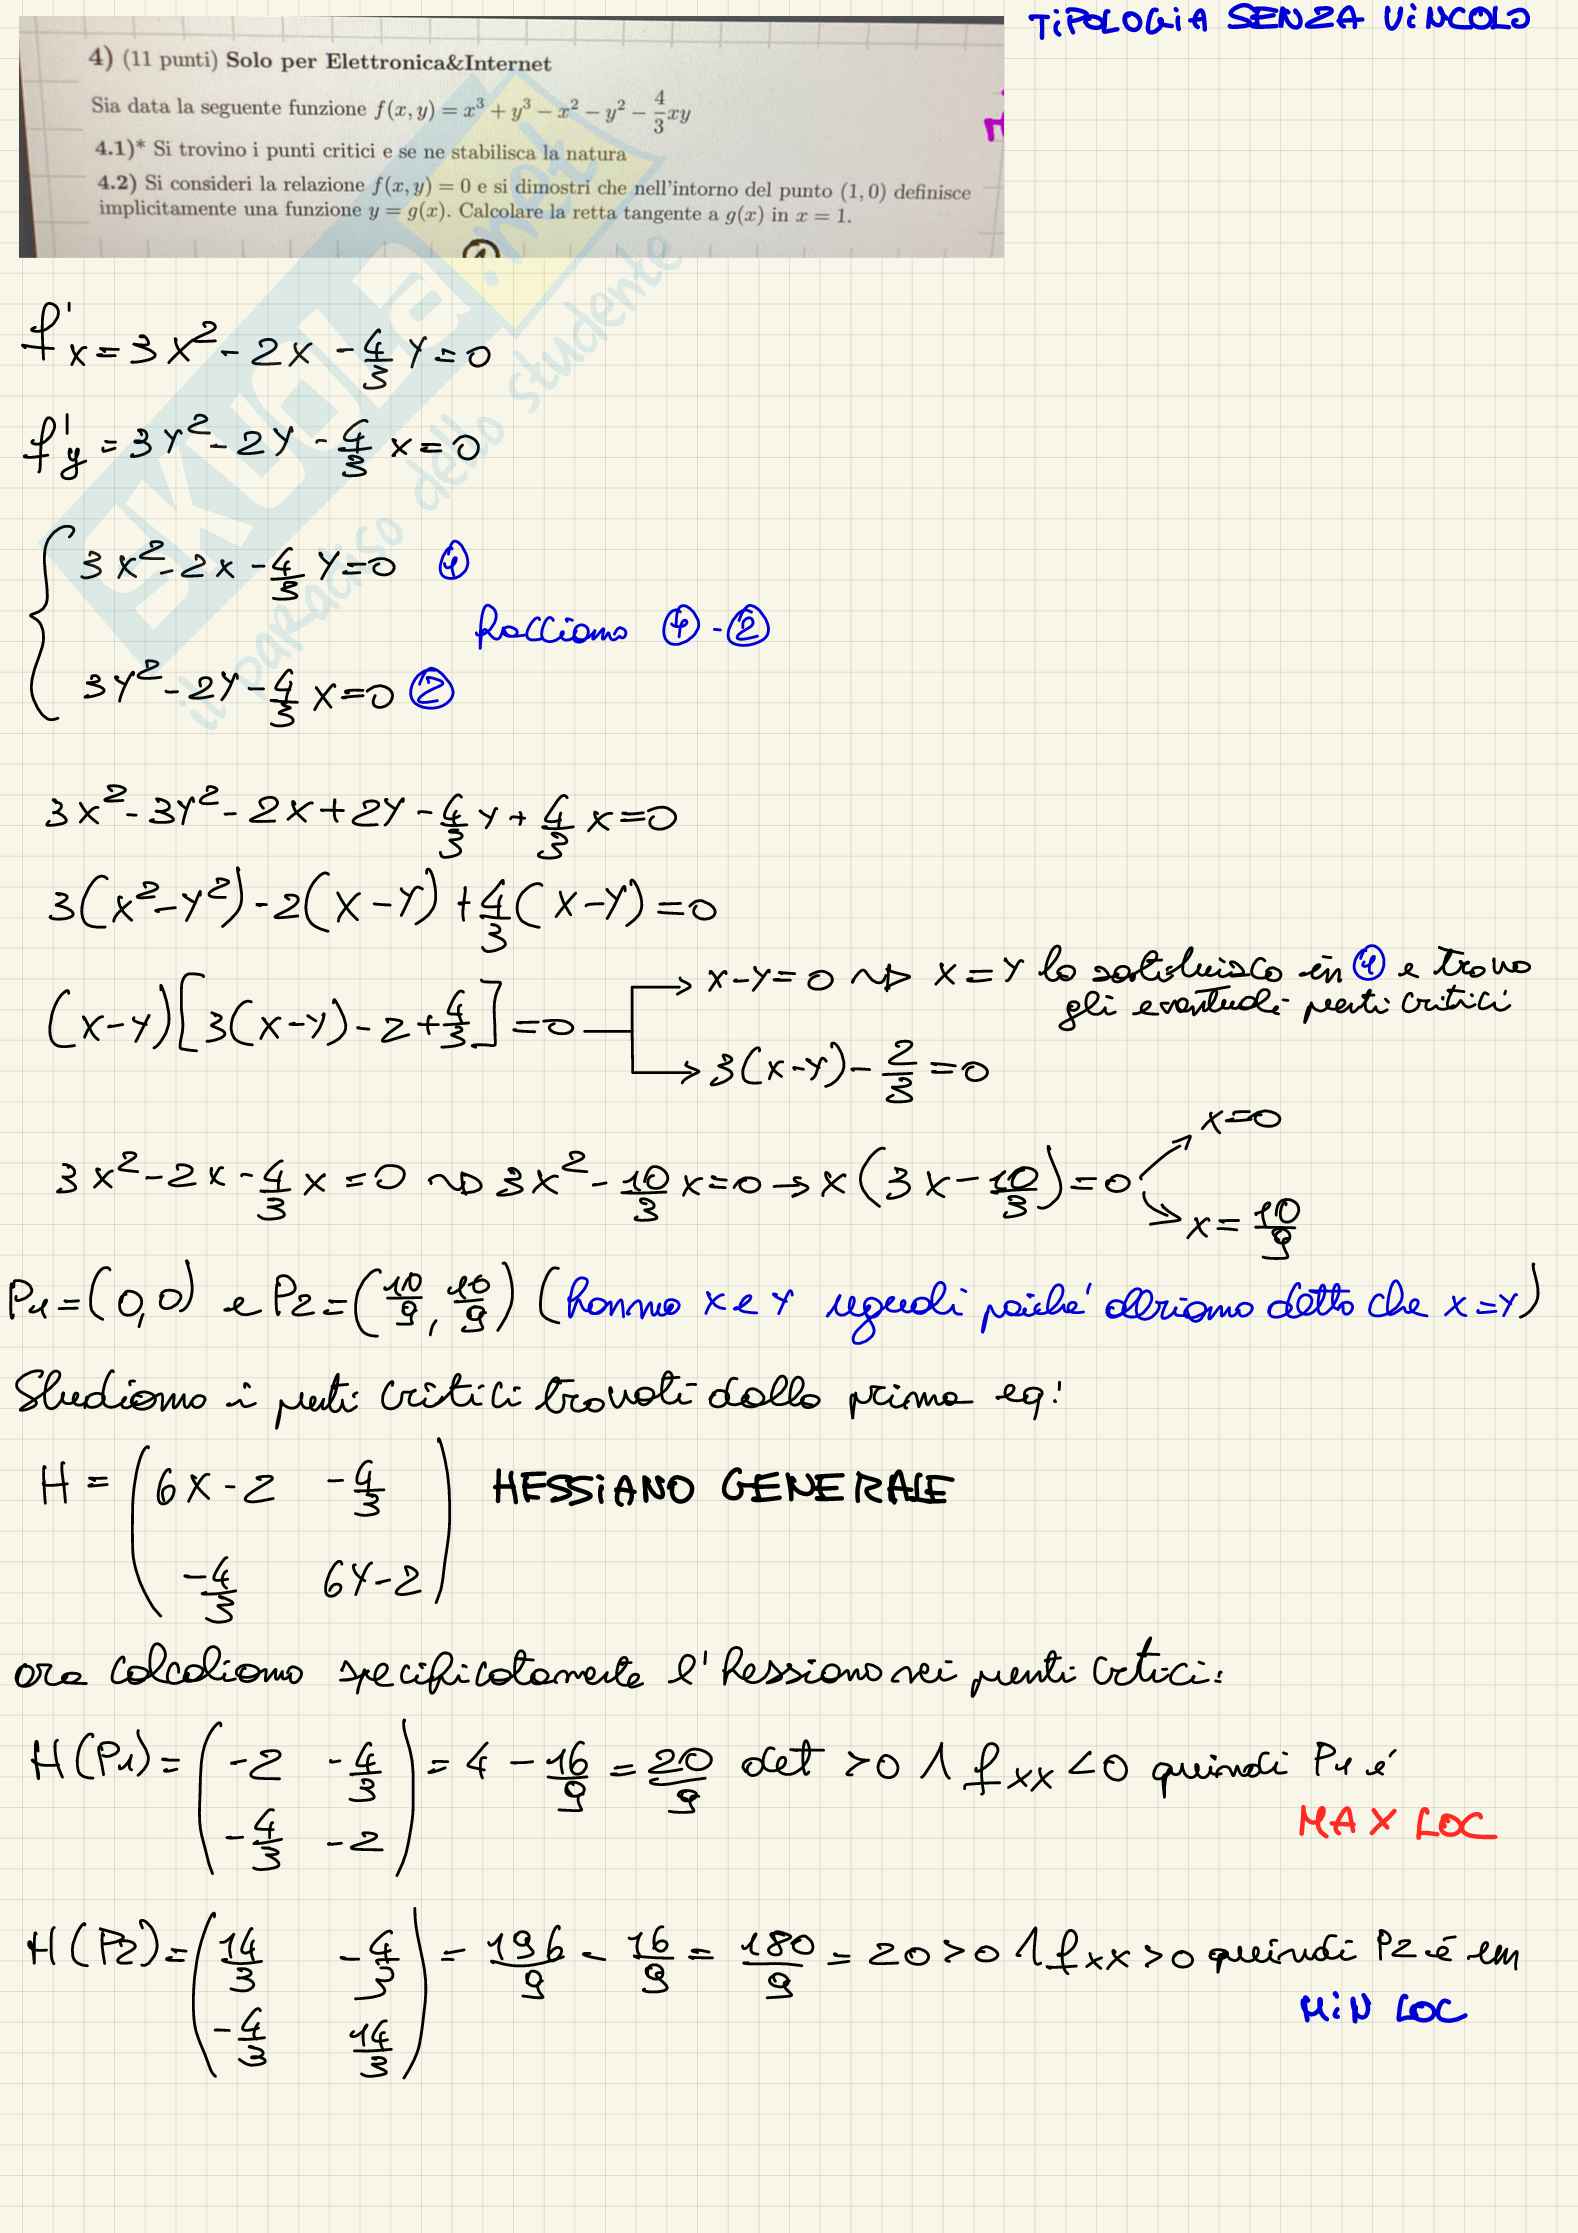 TIPOLOGIA SENZA VINCOLO
4) (11 punti) Solo per Elettronica&Internet
Sia data la seguente funzione f(x, y) = x³ + y³ − x² − y² − 4/3 xy
4.1)* Si trovino i punti critici e se ne stabilisca la natura
4.2) Si consideri la relazione f(x, y) = 0 e si dimostri che nell'intorno del punto (1, 0) definisce
implicitamente una funzione y = g(x). Calcolare la retta tangente a g(x) in x = 1.
SKUOLA.net
il paradiso dello studente
f'x = 3x² - 2x - 4/3 y = 0
f'y = 3y² - 2y - 4/3 x = 0
3x² - 2x - 4/3 y = 0 ①
facciamo ① - ②
3y² - 2y - 4/3 x = 0 ②
3x² - 3y² - 2x + 2y - 4/3 y + 4/3 x = 0
3(x² - y²) - 2(x - y) + 4/3 (x - y) = 0
x - y = 0 ~> x = y lo sostituisco in ① e trovo
gli eventuali punti critici
(x - y)[3(x - y) - 2 + 4/3] = 0
3(x - y) - 2/3 = 0
x = 0
3x² - 2x - 4/3 x = 0 ~> 3x² - 10/3 x = 0 → x(3x - 10/3) = 0
x = 10/9
P1 = (0,0) e P2 = (10/9, 10/9) (hanno x e y uguali poiché abbiamo detto che x = y)
Studiamo i punti critici trovati dalla prima eq:
H = (6x - 2 -4/3 HESSIANO GENERALE
-4/3 6y - 2)
ora calcoliamo specificatamente l'hessiano nei punti critici:
H(P1) = (-2 -4/3 = 4 - 16/9 = 20/9 det > 0 ∧ fxx < 0 quindi P1 é
-4/3 -2)
MAX LOC
H(P2) = (14/3 -4/3 = 196/9 - 16/9 = 180/9 = 20 > 0 ∧ fxx > 0 quindi P2 é un
-4/3 14/3)
MIN LOC